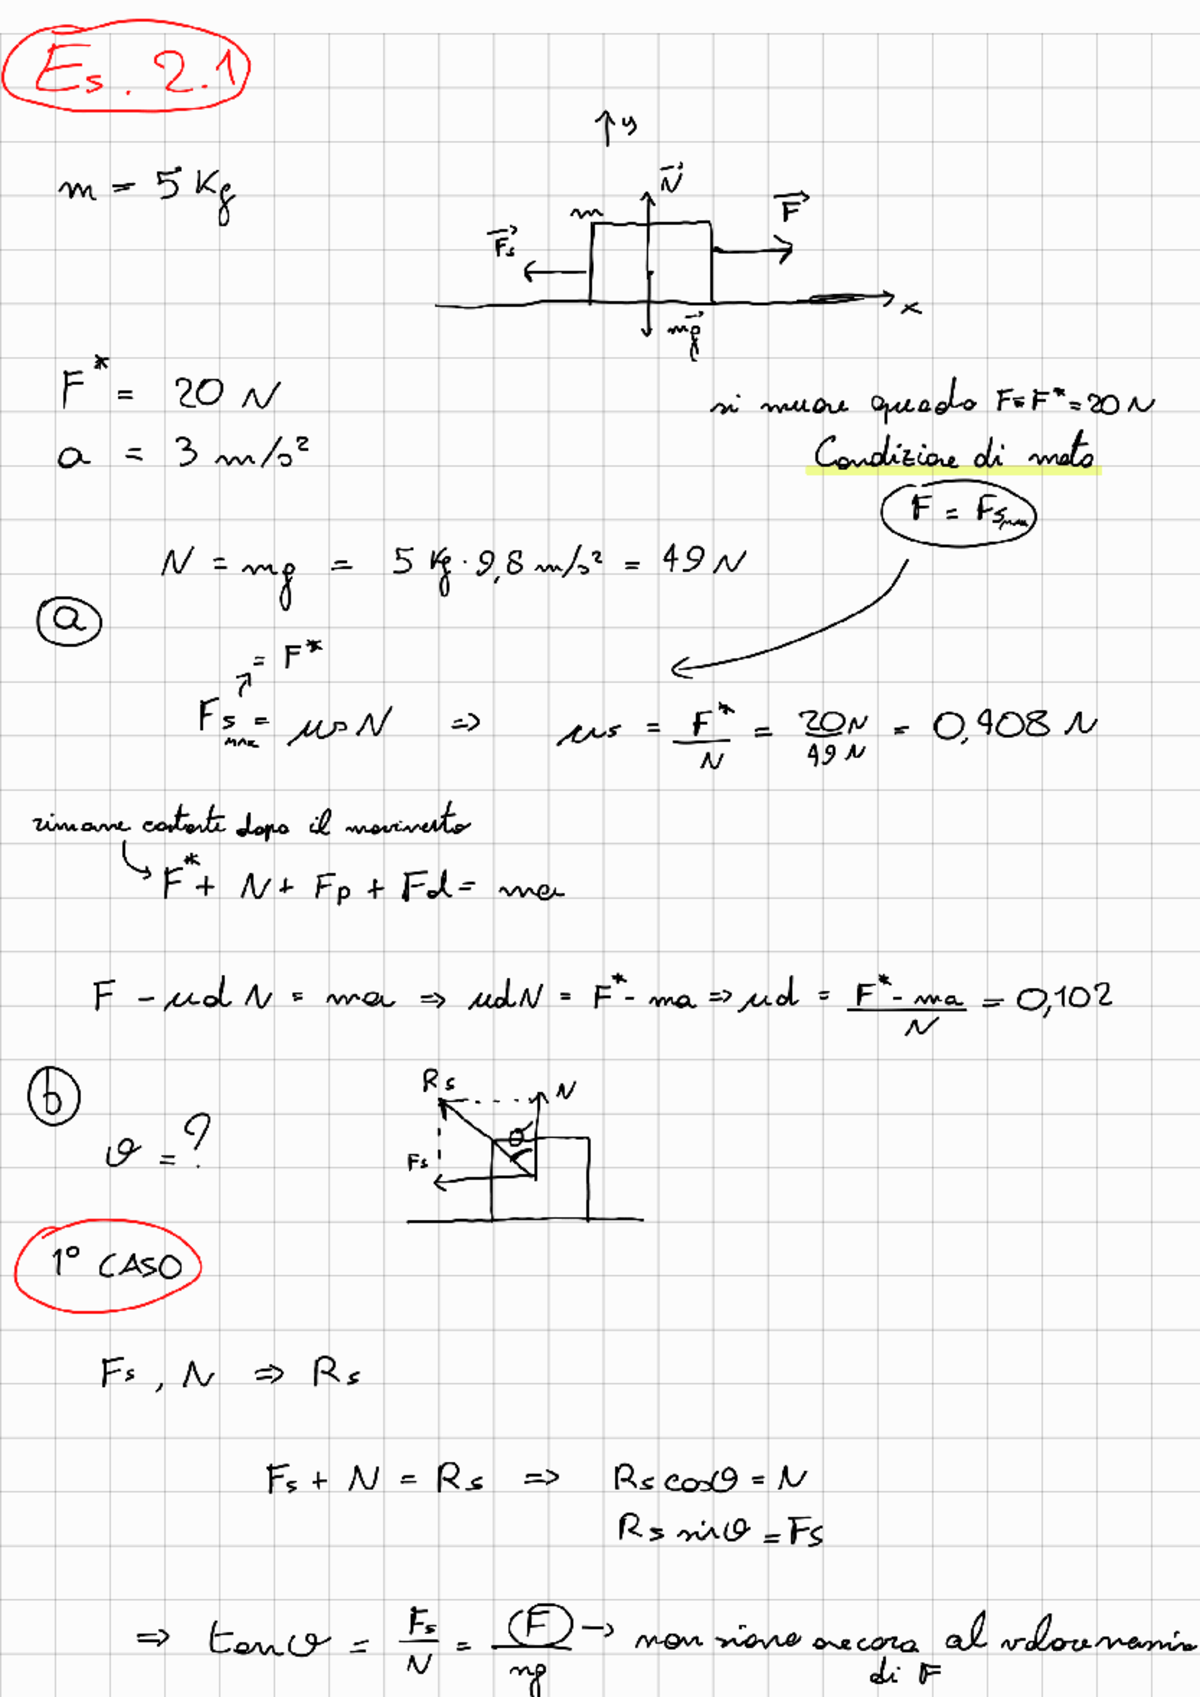 Es. 2.1
m = 5 Kg
↑y
N
m
F
Fs
x
mg
F* = 20 N
a = 3 m/s²
si muove quando F=F*=20N
Condizione di moto
F = Fsmax
N = mg = 5 Kg · 9,8 m/s² = 49 N
a
= F*
Fsmax = μs N ⇒ μs = F*/N = 20N/49N = 0,408 N
rimane costante dopo il movimento
F* + N + Fp + Fd = ma
F - μd N = ma ⇒ μdN = F* - ma ⇒ μd = F* - ma/N = 0,102
b
θ = ?
Rs
N
θ
Fs
1° CASO
Fs , N ⇒ Rs
Fs + N = Rs ⇒ Rs cosθ = N
Rs sinθ = Fs
⇒ tanθ = Fs/N = F/mg → non siamo ancora al valore
di F